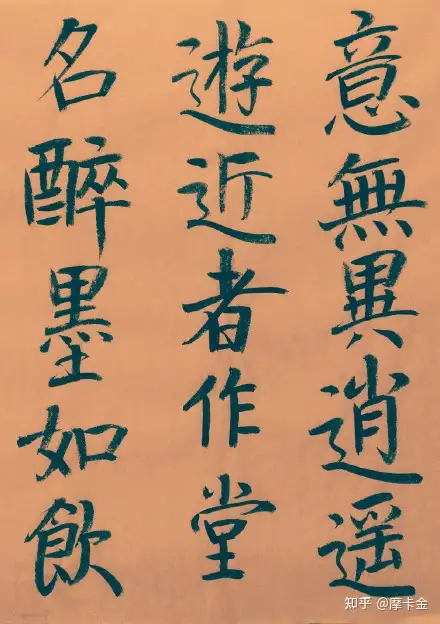 意無異逍遥
遊近者作堂
名醉墨如飲
知乎 @摩卡金